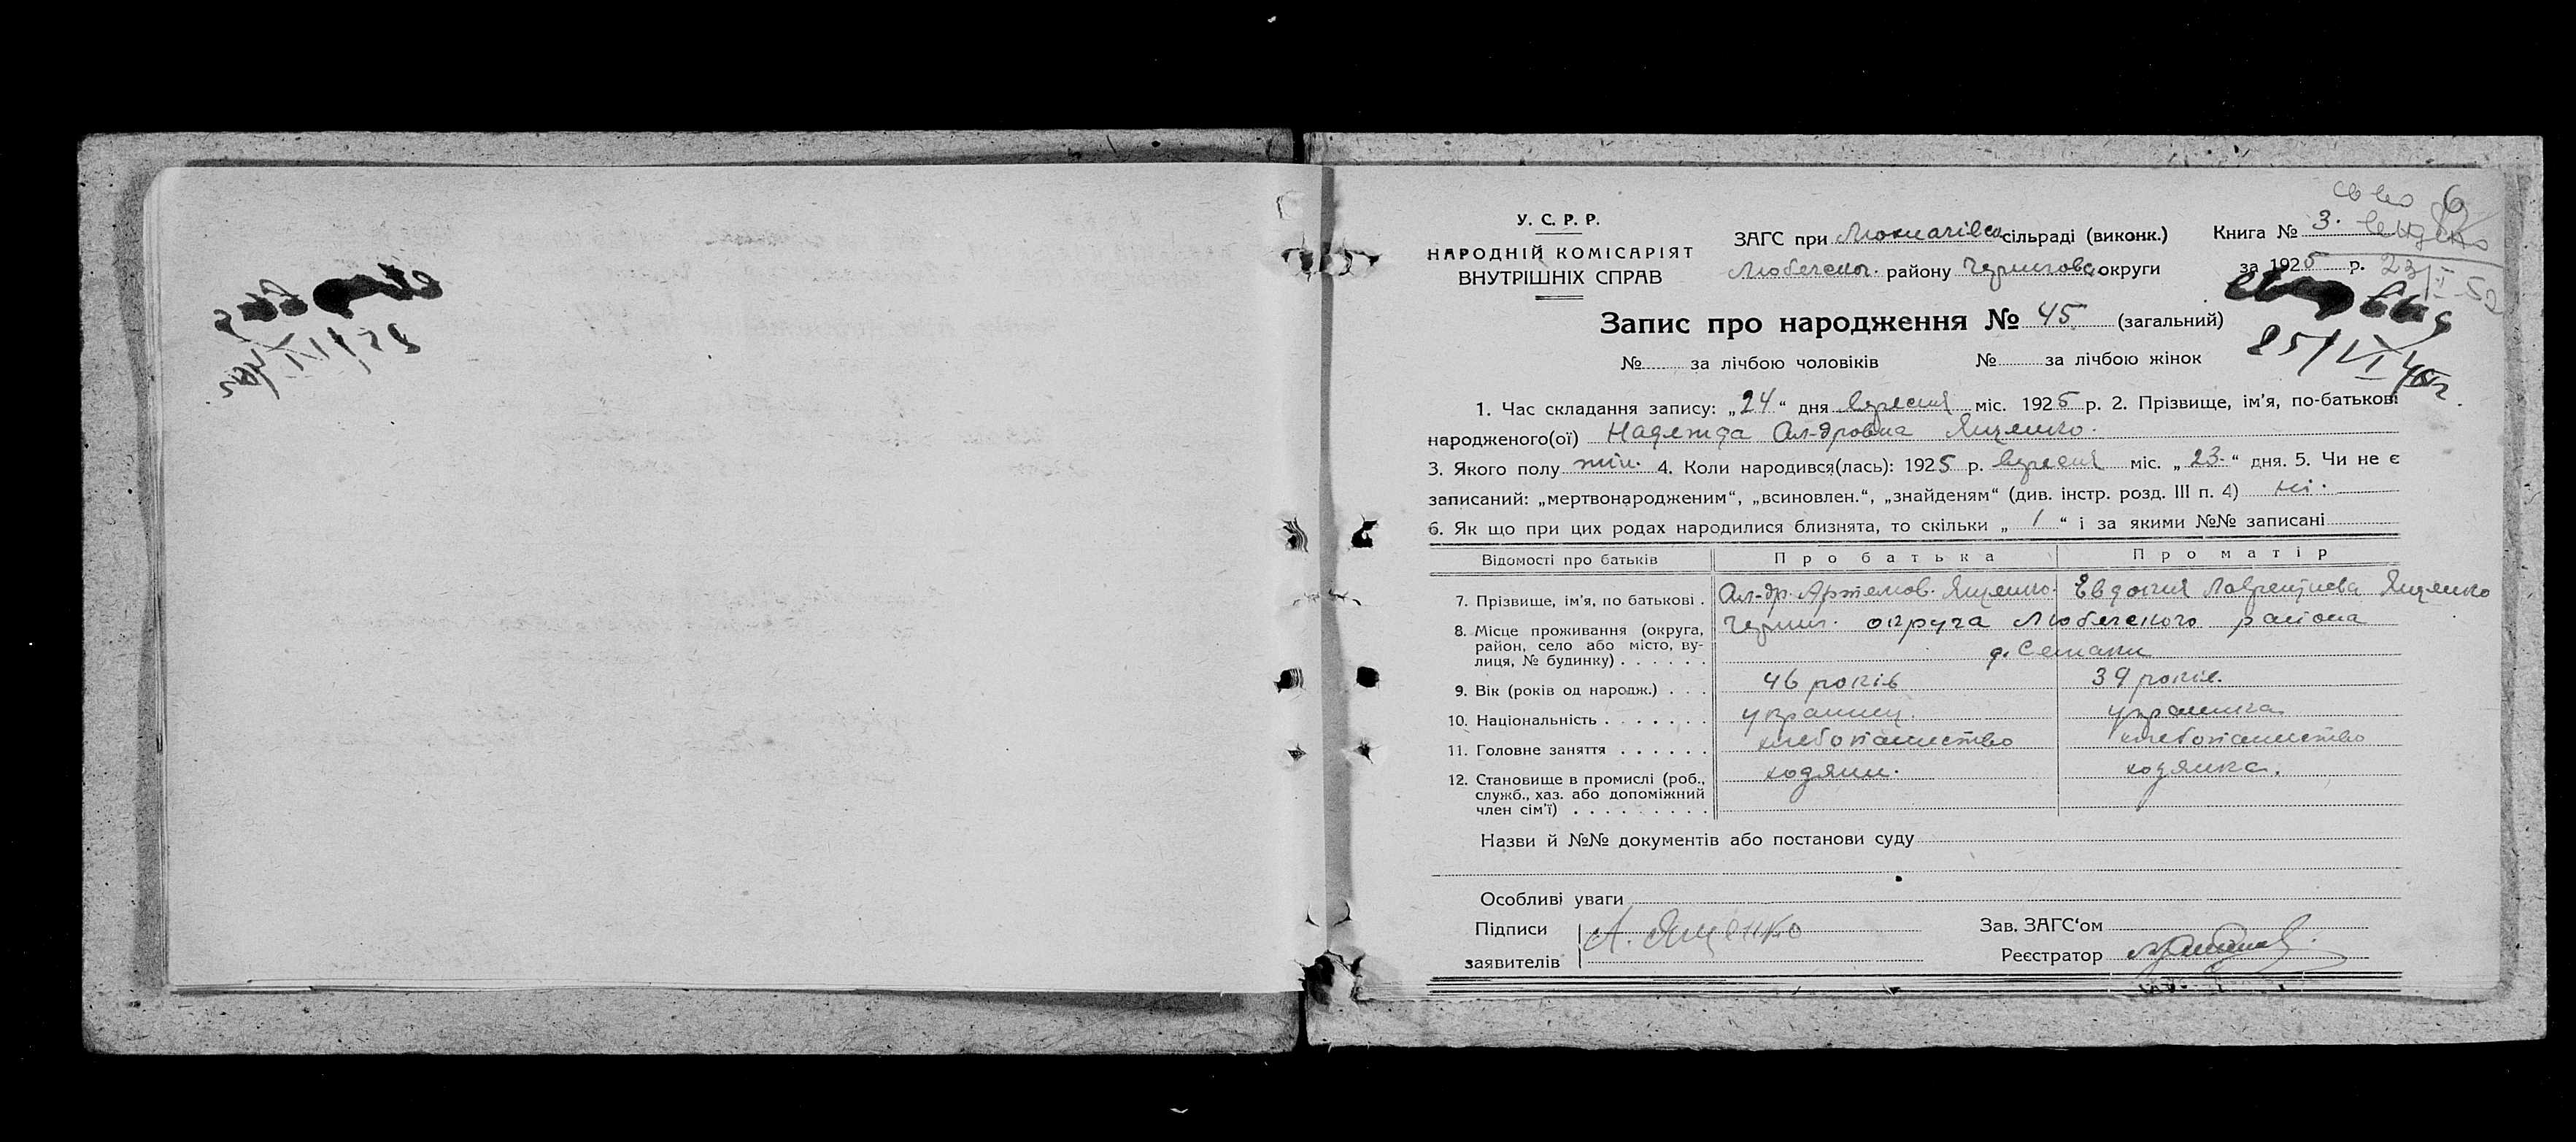 У. С. Р. Р.
НАРОДНІЙ КОМІСАРІЯТ
ВНУТРІШНІХ СПРАВ
ЗАГС при сільраді (виконк.)
Любечског. району Черниговс. округи
Книга № 3.
за 1925 р.
23/I-52
Запис про народження № 45 (загальний)
№ за лічбою чоловіків № за лічбою жінок
25/VI
1. Час складання запису: „24“ дня вересня міс. 1925 р. 2. Прізвище, ім’я, по-батькові
народженого(ої) Надежда Ал-дровна Ященко.
3. Якого полу жін. 4. Коли народився(лась): 1925 р. вересня міс. „23.“ дня. 5. Чи не є
записаний: „мертвонародженим“, „всиновлен.“, „знайденям“ (див. інстр. розд. III п. 4) ні.
6. Як що при цих родах народилися близнята, то скільки „1“ і за якими №№ записані
Відомості про батьків Про батька Про матір
7. Прізвище, ім’я, по батькові . Ал-др. Артемов. Ященко. Евдокия Лаврентиева Ященко
8. Місце проживання (округа, Черниг. округа Любечского района
район, село або місто, ву-
лиця, № будинку) . . . . . . д.
9. Вік (років од народж.) . . . 46 років 39 років.
10. Національність . . . . . . . украинец. украинка.
11. Головне заняття . . . . . . хлебопашество хлебопашество
12. Становище в промислі (роб., ходяин. хозяика.
служб., хаз. або допоміжний
член сім’ї) . . . . . . . . .
Назви й №№ документів або постанови суду
Особливі уваги
Підписи А. Ященко Зав. ЗАГС‘ом
заявителів Реєстратор